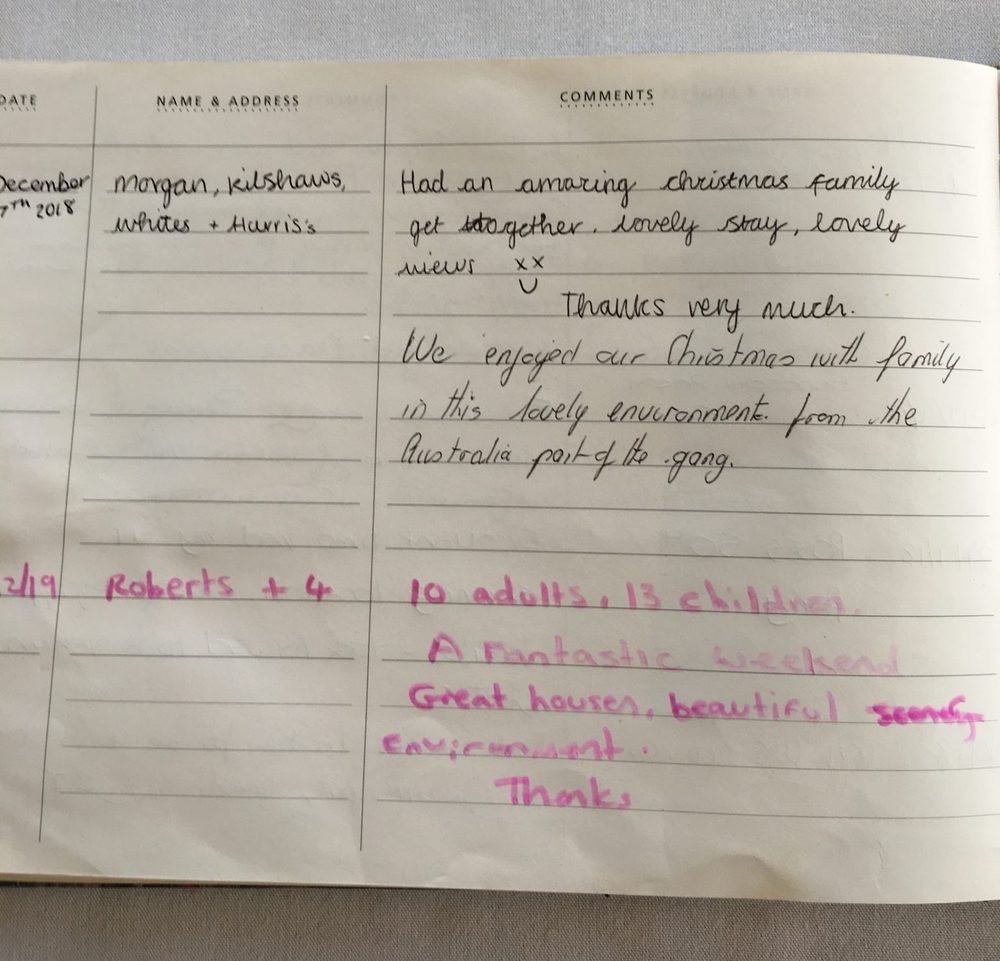 DATE NAME & ADDRESS COMMENTS
December morgan, kilshaws, Had an amazing christmas family
7TH 2018 whites + Harris's get together. lovely stay, lovely
views xx
Thanks very much.
We enjoyed our Christmas with family
in this lovely enviornment. from the
Australia part of the gang.
2/19 Roberts + 4 10 adults, 13 children.
A Fantastic weekend
Great houses, beautiful
environment.
Thanks